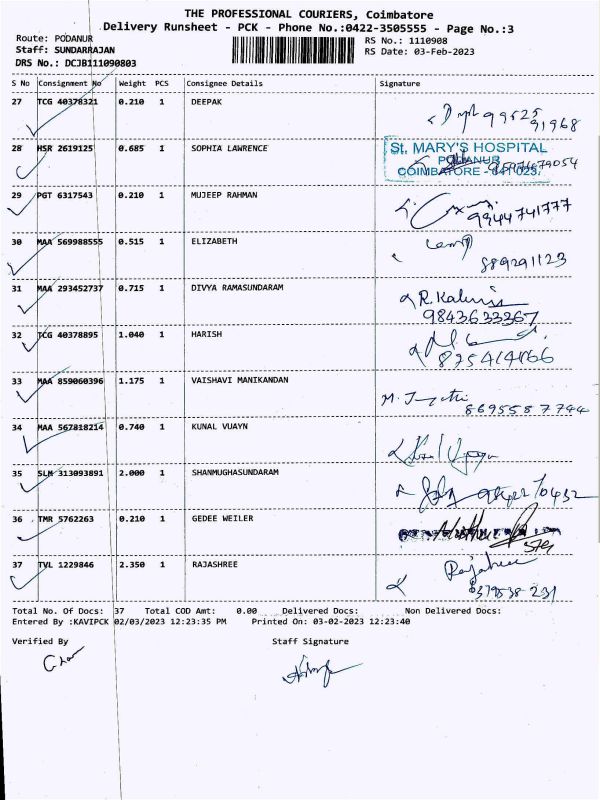 THE PROFESSIONAL COURIERS, Coimbatore
Delivery Runsheet - PCK - Phone No.:0422-3505555 - Page No.:3
Route: PODANUR
RS No.: 1110908
Staff: SUNDARRAJAN
RS Date: 03-Feb-2023
DRS No.: DCJB111090803
S No Consignment No Weight PCS Consignee Details Signature
27 TCG 40378321 0.210 1 DEEPAK
91968
28 HSR 2619125 0.685 1 SOPHIA LAWRENCE
St. MARY'S HOSPITAL
PODANUR
COIMBATORE - 641 023.
29 PGT 6317543 0.210 1 MUJEEP RAHMAN
9944741777
30 MAA 569988555 0.515 1 ELIZABETH
889291123
31 MAA 293452737 0.715 1 DIVYA RAMASUNDARAM
9843633367
32 TCG 40378895 1.040 1 HARISH
33 MAA 859060396 1.175 1 VAISHAVI MANIKANDAN
8695587744
34 MAA 567818214 0.740 1 KUNAL VUAYN
35 SLM 313093891 2.000 1 SHANMUGHASUNDARAM
36 TMR 5762263 0.210 1 GEDEE WEILER
37 TVL 1229846 2.350 1 RAJASHREE
Rajashree
Total No. Of Docs: 37 Total COD Amt: 0.00 Delivered Docs: Non Delivered Docs:
Entered By :KAVIPCK 02/03/2023 12:23:35 PM Printed On: 03-02-2023 12:23:40
Verified By Staff Signature